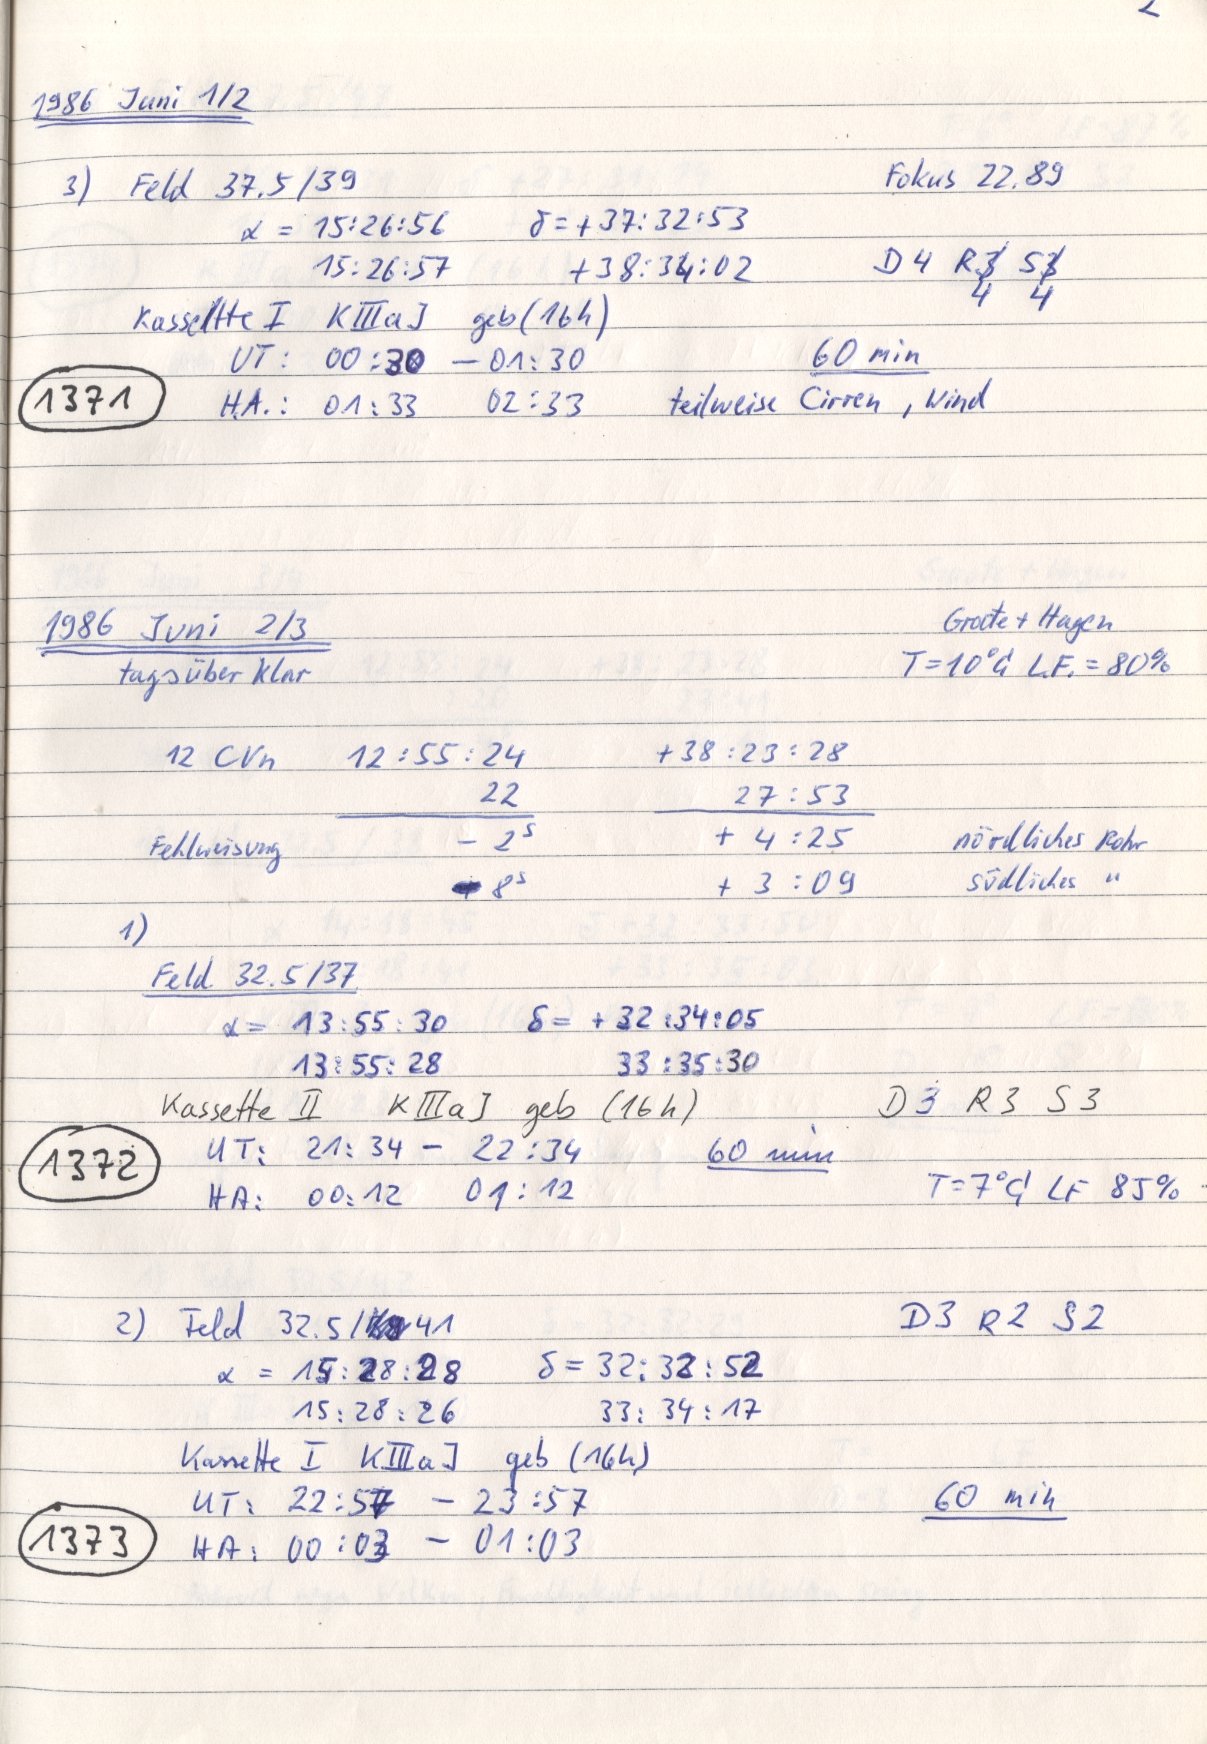 2
1986 Juni 1/2
3) Feld 37.5/39 Fokus 22.89
α = 15:26:56 δ = +37:32:53
15:26:57 +38:34:02 D4 R3 S3
4 4
Kassette I KIIIaJ geb (16h)
UT: 00:30 – 01:30 60 min
1371 H.A.: 01:33 02:33 teilweise Cirren, Wind
1986 Juni 2/3 Groote + Hagen
tagsüber klar T=10°C L.F.=80%
12 CVn 12:55:24 +38:23:28
22 27:53
Fehlweisung – 2s + 4:25 nördliches Rohr
+ 8s + 3:09 südliches "
1)
Feld 32.5/37
α = 13:55:30 δ = +32:34:05
13:55:28 33:35:30
Kassette II KIIIaJ geb (16h) D3 R3 S3
1372 UT: 21:34 – 22:34 60 min
HA: 00:12 01:12 T=7°C LF 85%
2) Feld 32.5/41 D3 R2 S2
α = 15:28:28 δ = 32:32:52
15:28:26 33:34:17
Kassette I KIIIaJ geb (16h)
UT: 22:57 – 23:57 60 min
1373 HA: 00:03 – 01:03